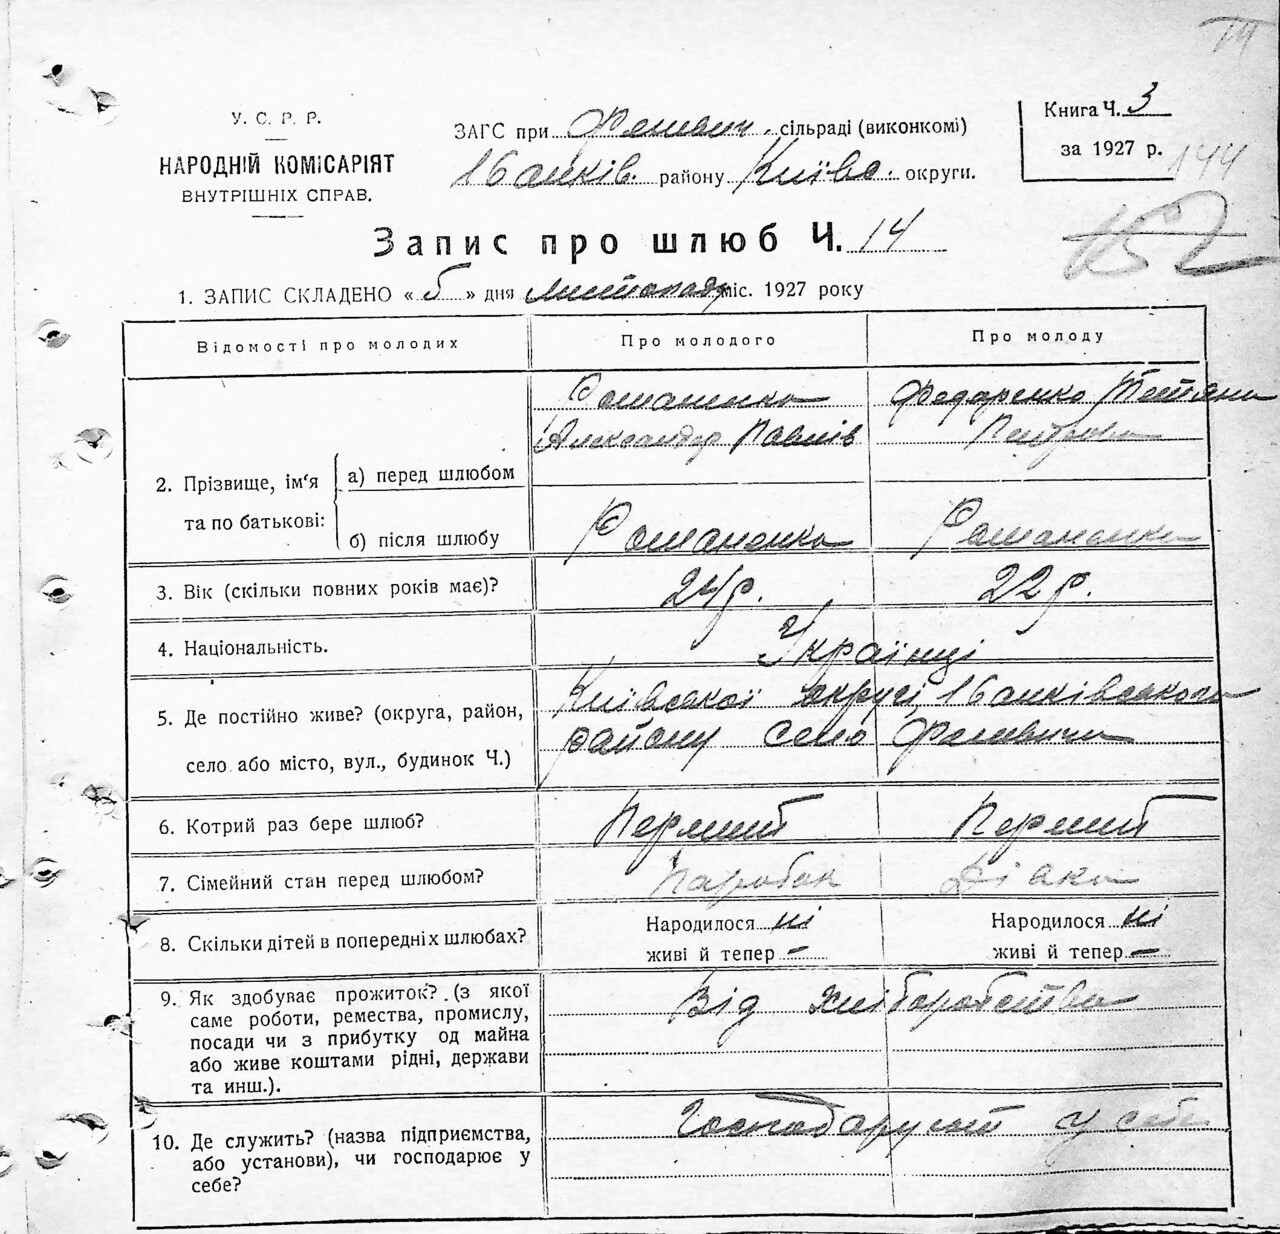 У. С. Р. Р.
НАРОДНІЙ КОМІСАРІЯТ
ВНУТРІШНІХ СПРАВ.
ЗАГС при Феневич. сільраді (виконкомі)
району Київс. округи.
Книга Ч. 3
за 1927 р.
144
Запис про шлюб Ч. 14
1. ЗАПИС СКЛАДЕНО « 5 » дня листопада міс. 1927 року
Відомості про молодих
Про молодого
Про молоду
2. Прізвище, ім'я та по батькові:
а) перед шлюбом
Романенко
Александр Павлів
Федаренко Тетяна
Петрівна
б) після шлюбу
Романенко
Романенко
3. Вік (скільки повних років має)?
24 р.
22 р.
4. Національність.
Українці
5. Де постійно живе? (округа, район,
село або місто, вул., будинок Ч.)
Київської округи,
району село Феневичи
6. Котрий раз бере шлюб?
Перший
Перший
7. Сімейний стан перед шлюбом?
Паробок
Дівка
8. Скільки дітей в попередніх шлюбах?
Народилося ні
живі й тепер –
Народилося ні
живі й тепер –
9. Як здобуває прожиток? (з якої
саме роботи, ремества, промислу,
посади чи з прибутку од майна
або живе коштами рідні, держави
та инш.).
Від хліборобства
10. Де служить? (назва підприємства,
або установи), чи господарює у
себе?
Господарюют у себе